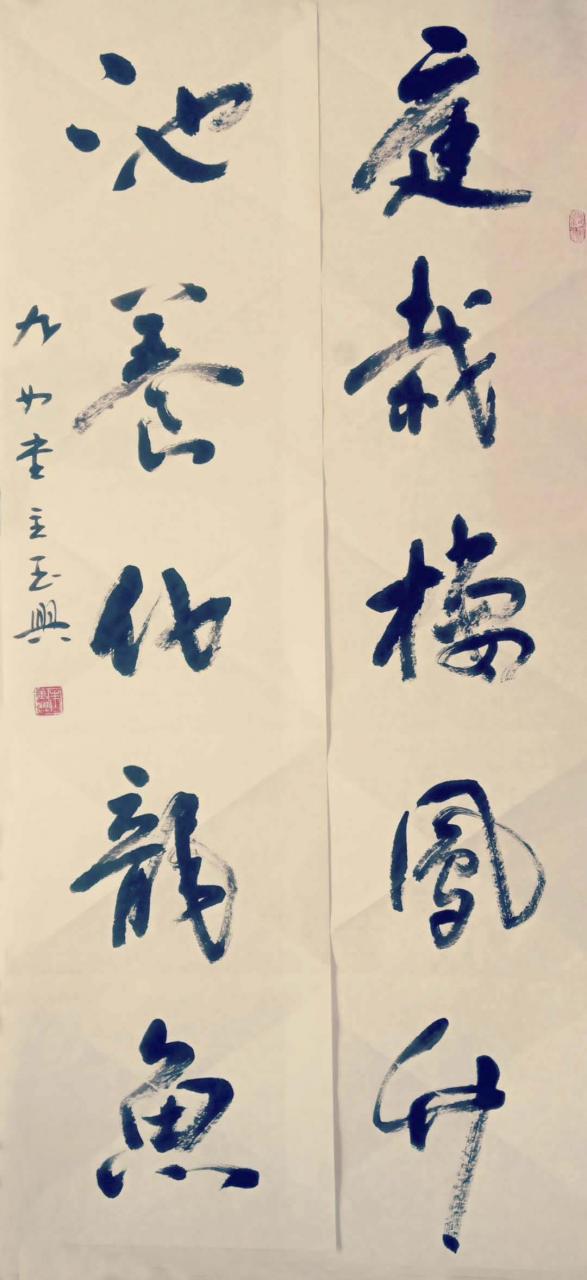 庭栽棲鳳竹
池養化龍魚
九如堂主玉興